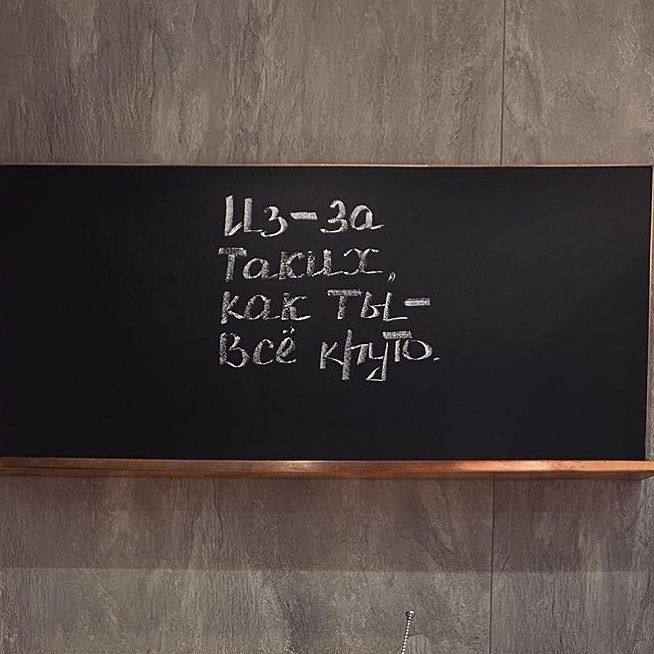 Из-за
таких,
как ты -
всё круто.